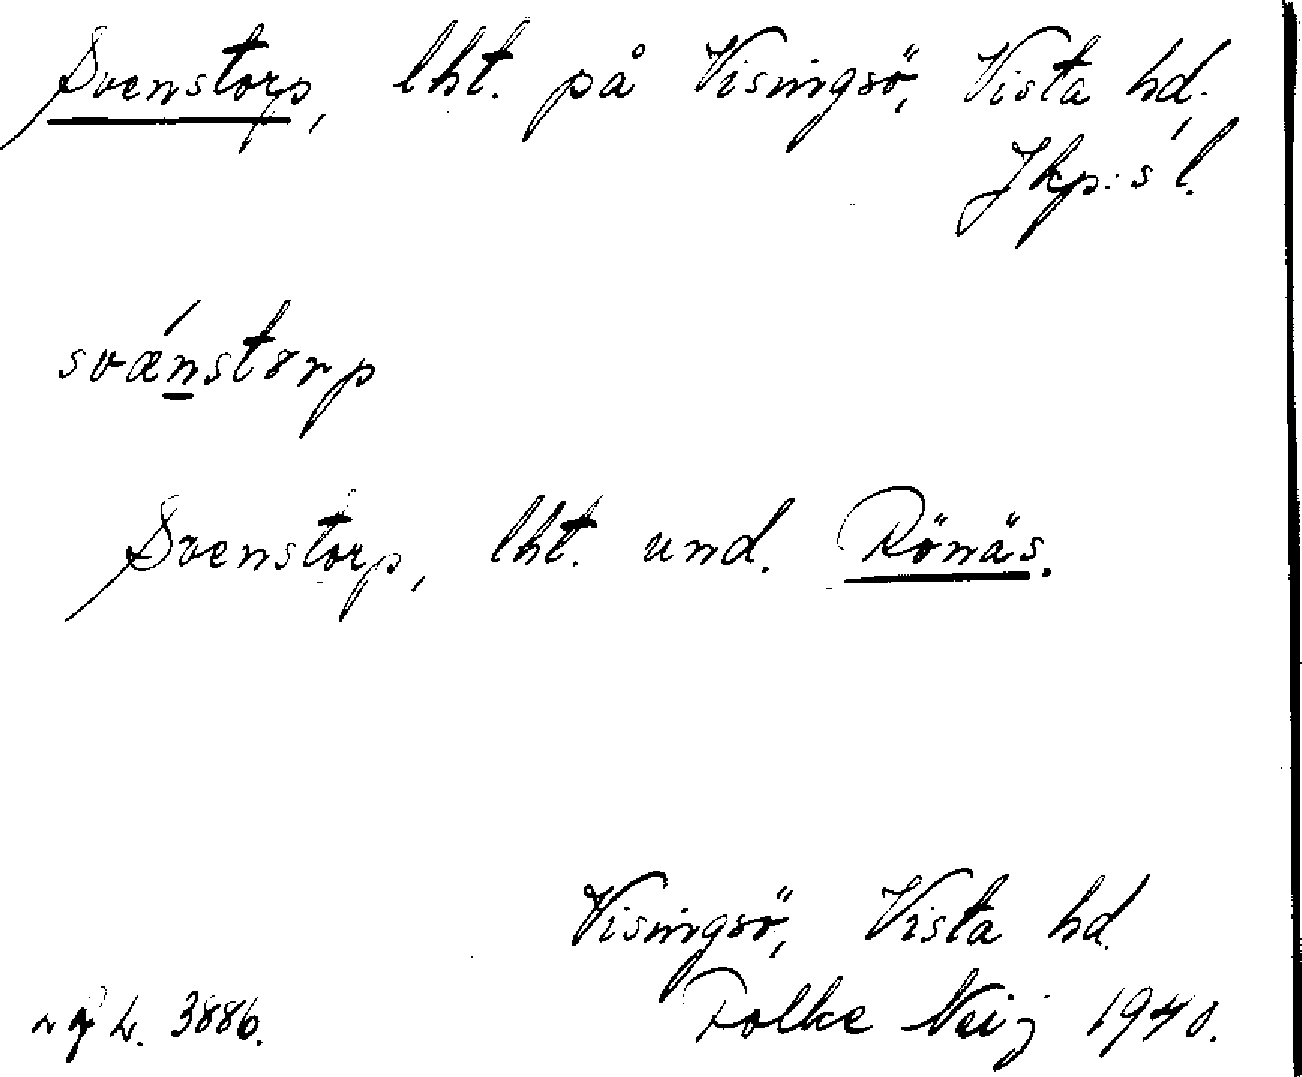 Svenstorp, lht. på Visingsö, Vista hd.
Jkp:s l.
svǽnstorp
Svenstorp, lht. und. Rönäs.
Visingsö, Vista hd.
3886. Folke Neij 1940.